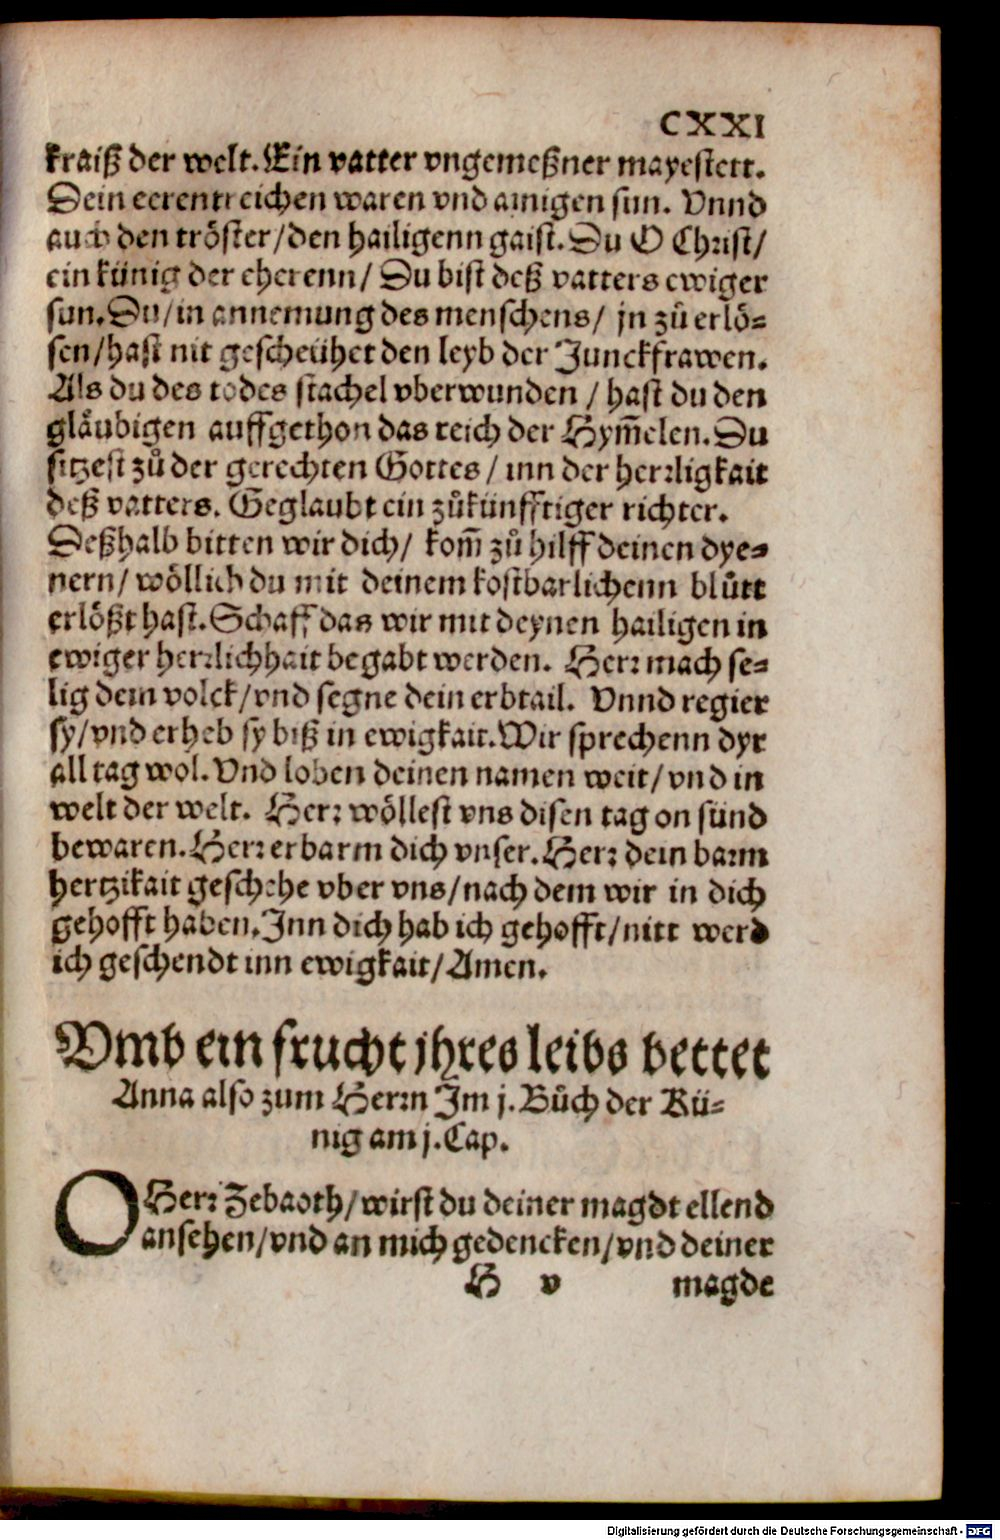 CXXI
kraiß der welt. Ein vatter vngemeßner mayestett.
Dein eerentreichen waren vnd ainigen sun. Vnnd
auch den tröster/den hailigenn gaist. Du O Christ/
ein künig der eherenn/ Du bist deß vatters ewiger
sun. Du/in annemung des menschens/ jn zů erlö⸗
sen/hast nit gescheühet den leyb der Junckfrawen.
Als du des todes stachel vberwunden / hast du den
gläubigen auffgethon das reich der Hym̄elen. Du
sitzest zů der gerechten Gottes / inn der herrligkait
deß vatters. Geglaubt ein zůkünfftiger richter.
Deßhalb bitten wir dich/ kom̄ zů hilff deinen dye⸗
nern/ wöllich du mit deinem kostbarlichenn blůtt
erlößt hast. Schaff das wir mit deynen hailigen in
ewiger herrlichhait begabt werden. Herr mach se⸗
lig dein volck/vnd segne dein erbtail. Vnnd regier
sy/vnd erheb sy biß in ewigkait. Wir sprechenn dyr
all tag wol. Vnd loben deinen namen weit/ vnd in
welt der welt. Herr wöllest vns disen tag on sünd
bewaren. Herr erbarm dich vnser. Herr dein barm
hertzikait geschehe vber vns/nach dem wir in dich
gehofft haben. Inn dich hab ich gehofft/nitt werd
ich geschendt inn ewigkait/Amen.
Vmb ein frucht jhres leibs bettet
Anna also zum Herrn Im j. Bůch der Kü⸗
nig am j. Cap.
O Herr Zebaoth/wirst du deiner magdt ellend
ansehen/vnd an mich gedencken/vnd deiner
H v magde
Digitalisierung gefördert durch die Deutsche Forschungsgemeinschaft - DFG